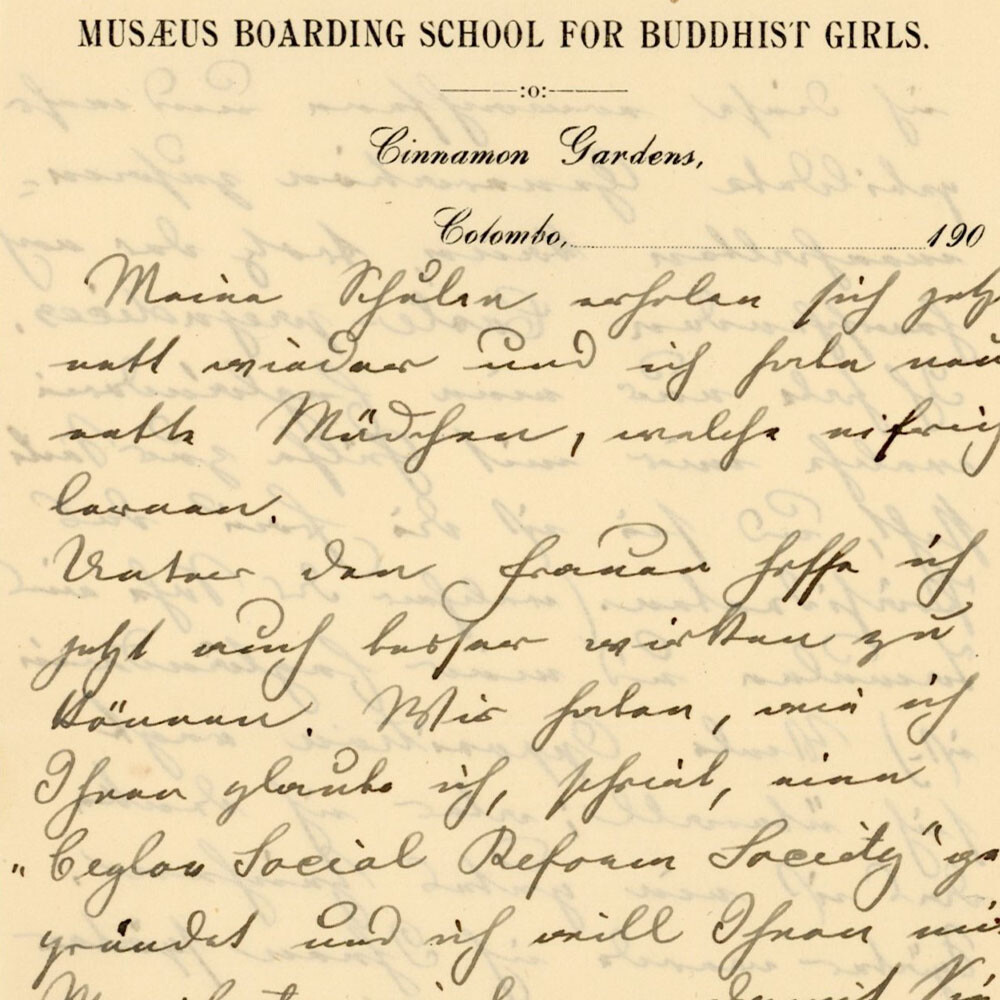 MUSÆUS BOARDING SCHOOL FOR BUDDHIST GIRLS.
:o:
Cinnamon Gardens,
Colombo, 190
Meine Schulen erholen sich jetzt
nett wieder und ich habe neun
nette Mädchen, welche eifrig
lernen.
Unter den Frauen hoffe ich
jetzt auch besser wirken zu
können. Wir haben, wie ich
Ihnen glaube ich, schrieb, eine
"Ceylon Social Reform Society" ge
gründet und ich will Ihnen